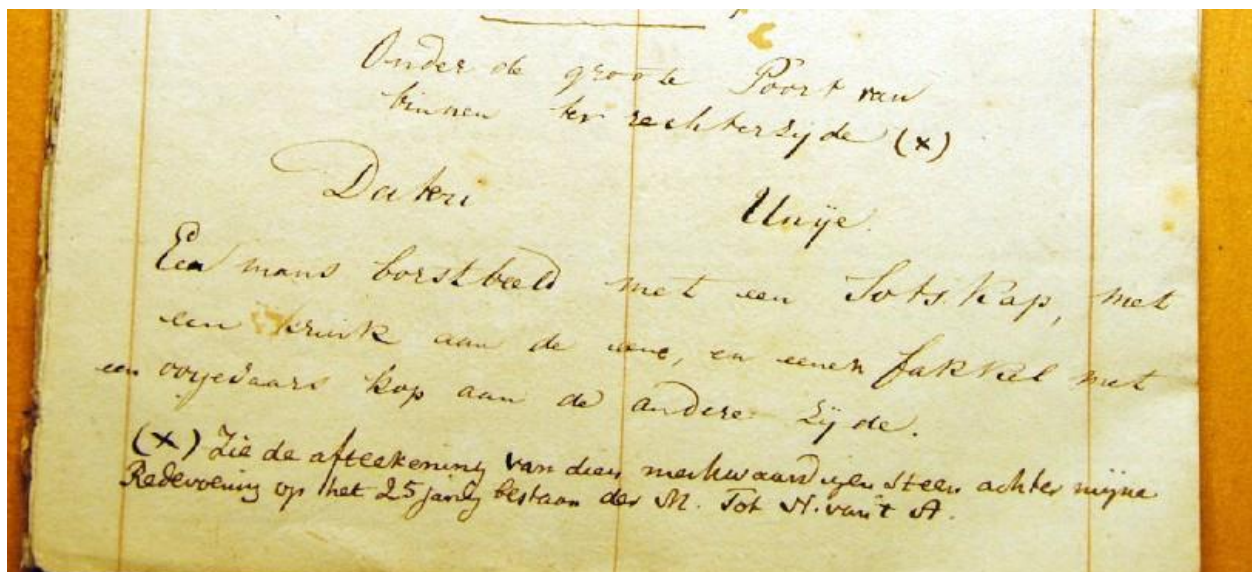 Onder de groote Poort van
binnen ter rechterzijde (x)
Daten Unije.
Een mans borstbeeld met een Sots Kap, met
een kruik aan de eene, en eenen fakkel met
een ooyevaars kop aan de andere zijde.
(x) Zie de afteekening van dien merkwaardigen steen achter mijne
Redevoering op het 25 jarig bestaan der M. Tot N. van 't A.